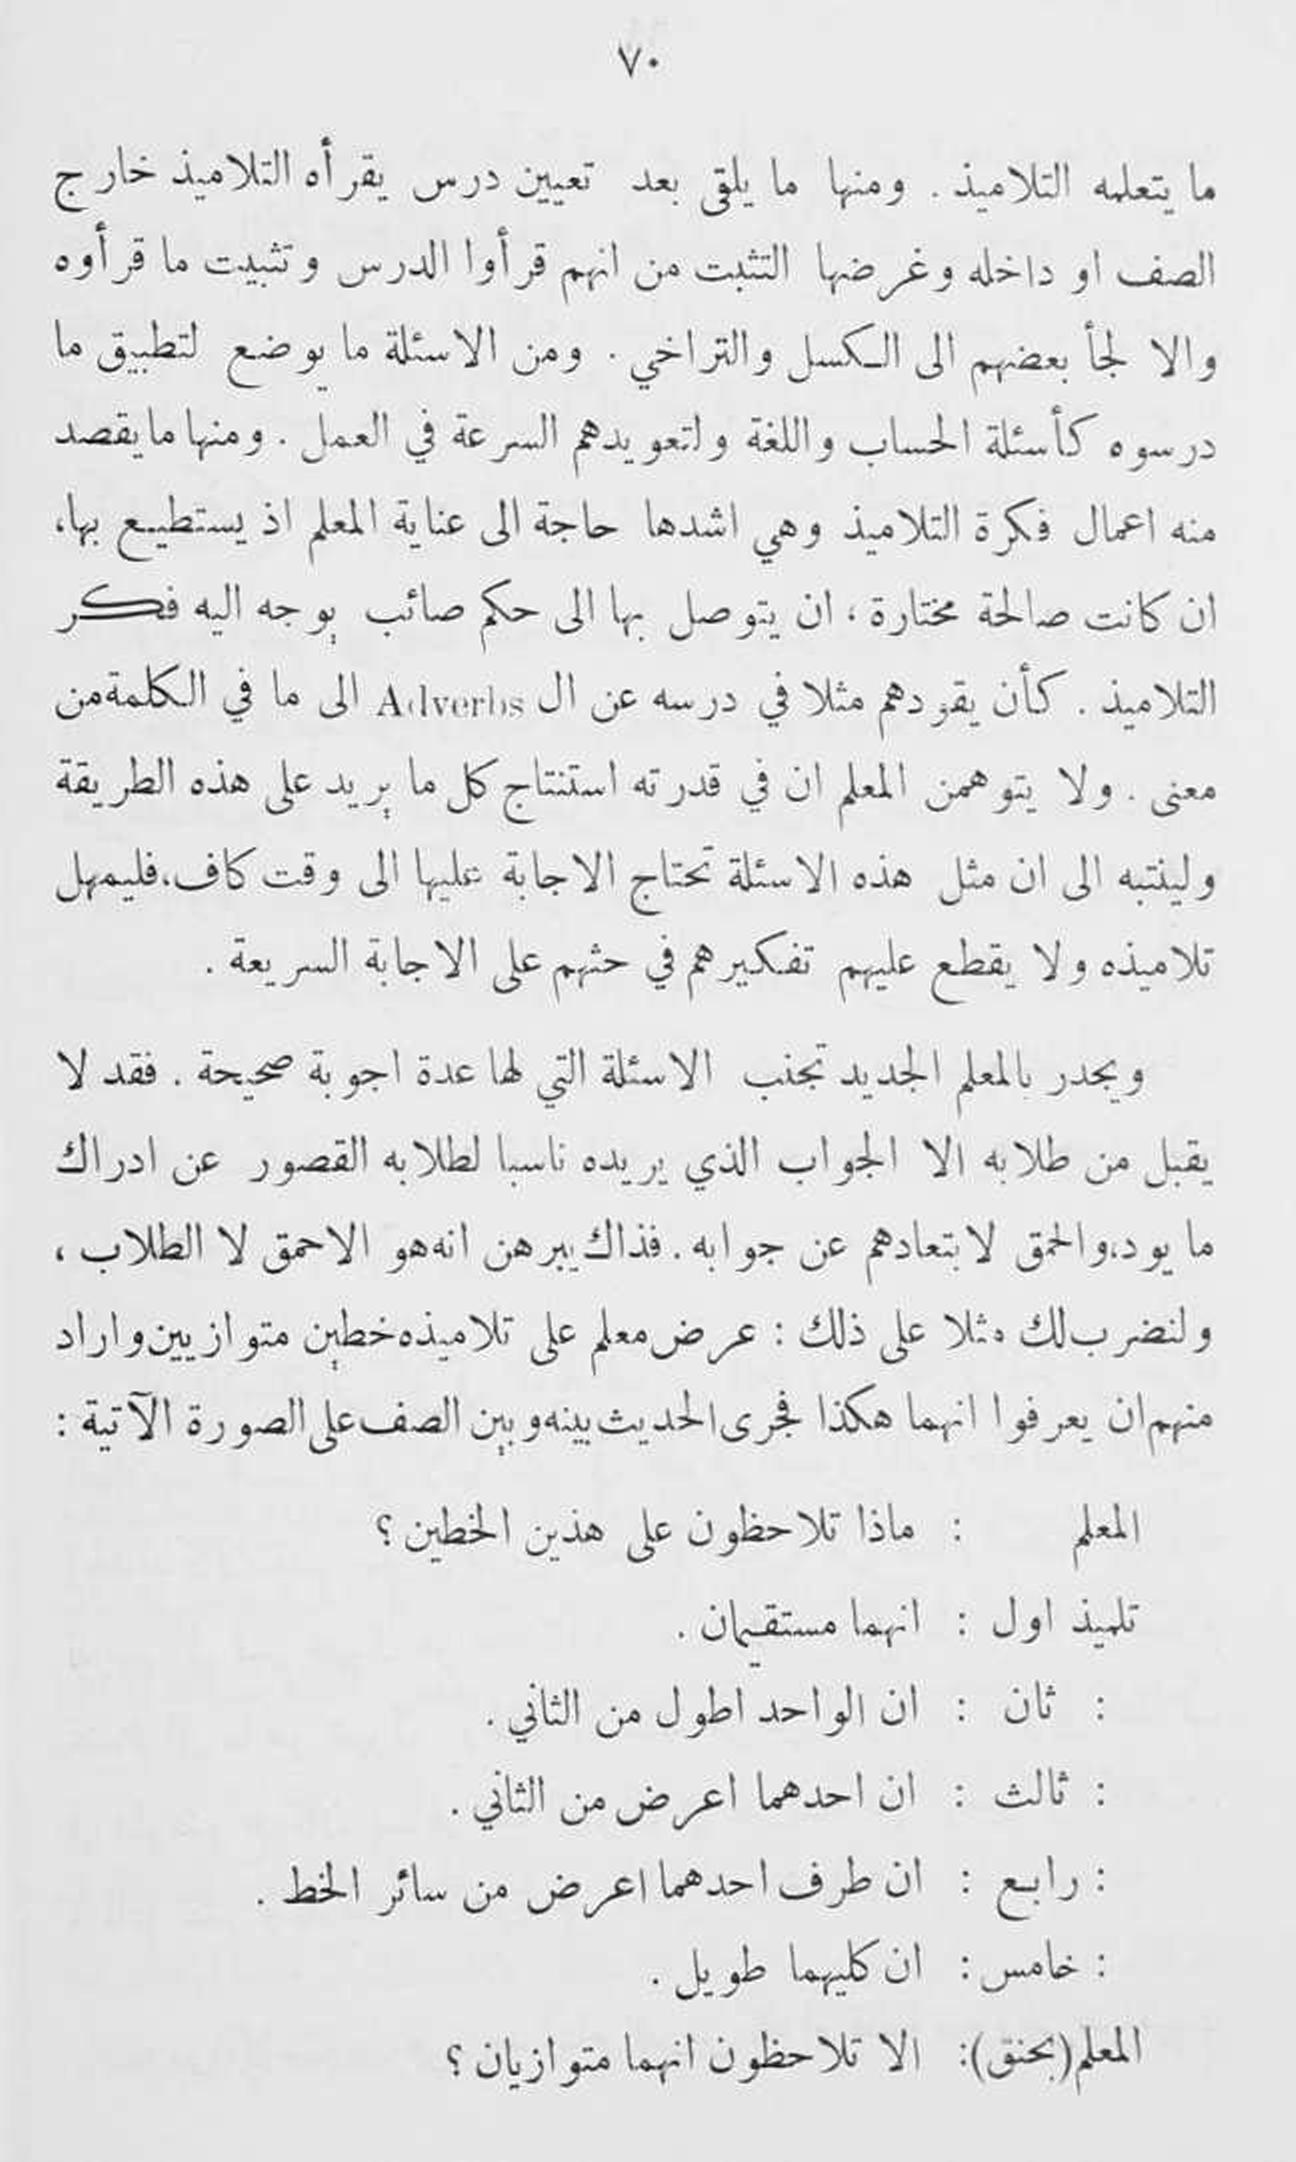 ٧٠
ما يتعلمه التلاميذ . ومنها ما يلقى بعد تعيين درس يقرأه التلاميذ خارج
الصف او داخله وغرضها التثبت من انهم قرأوا الدرس وتثبيت ما قرأوه
والا لجأ بعضهم الى الكسل والتراخي . ومن الاسئلة ما يوضع لتطبيق ما
درسوه كأسئلة الحساب واللغة ولتعويدهم السرعة في العمل . ومنها ما يقصد
منه اعمال فكرة التلاميذ وهي اشدها حاجة الى عناية المعلم اذ يستطيع بها،
ان كانت صالحة مختارة ، ان يتوصل بها الى حكم صائب يوجه اليه فكر
التلاميذ . كأن يقودهم مثلا في درسه عن ال Adverbs الى ما في الكلمة من
معنى . ولا يتوهمن المعلم ان في قدرته استنتاج كل ما يريد على هذه الطريقة
ولينتبه الى ان مثل هذه الاسئلة تحتاج الاجابة عليها الى وقت كاف، فليمهل
تلاميذه ولا يقطع عليهم تفكيرهم في حثهم على الاجابة السريعة .
ويجدر بالمعلم الجديد تجنب الاسئلة التي لها عدة اجوبة صحيحة . فقد لا
يقبل من طلابه الا الجواب الذي يريده ناسبا لطلابه القصور عن ادراك
ما يود، والحمق لابتعادهم عن جوابه . فذاك يبرهن انه هو الاحمق لا الطلاب ،
ولنضرب لك مثلا على ذلك : عرض معلم على تلاميذه خطين متوازيين واراد
منهم ان يعرفوا انهما هكذا فجرى الحديث بينه وبين الصف على الصورة الآتية :
المعلم : ماذا تلاحظون على هذين الخطين ؟
تلميذ اول : انهما مستقيمان .
: ثان : ان الواحد اطول من الثاني .
: ثالث : ان احدهما اعرض من الثاني .
: رابع : ان طرف احدهما اعرض من سائر الخط .
: خامس : ان كليهما طويل .
المعلم (بحنق): الا تلاحظون انهما متوازيان ؟